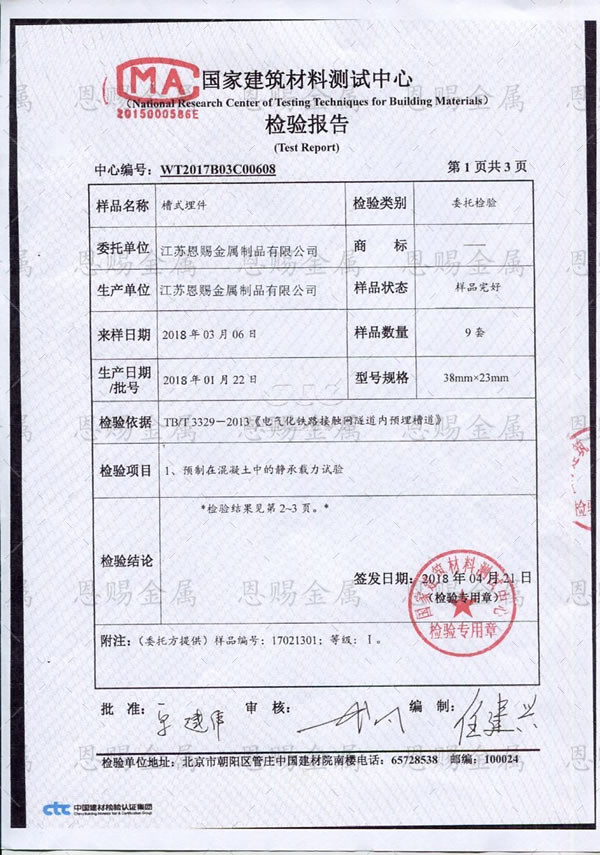 MA
2015000586E
国家建筑材料测试中心
(National Research Center of Testing Techniques for Building Materials)
检验报告
(Test Report)
中心编号: WT2017B03C00608 第 1 页共 3 页
样品名称 槽式埋件 检验类别 委托检验
委托单位 江苏恩赐金属制品有限公司 商 标 ——
生产单位 江苏恩赐金属制品有限公司 样品状态 样品完好
来样日期 2018 年 03 月 06 日 样品数量 9 套
生产日期/批号 2018 年 01 月 22 日 型号规格 38mm×23mm
检验依据 TB/T 3329－2013《电气化铁路接触网隧道内预埋槽道》
检验项目 1、预制在混凝土中的静承载力试验
检验结论 *检验结果见第 2~3 页。*
签发日期: 2018 年 04 月 21 日
(检验专用章)
国家建筑材料测试中心
检验专用章
附注:（委托方提供）样品编号: 17021301; 等级: Ⅰ。
批 准: 审 核: 编 制: 任建兴
检验单位地址: 北京市朝阳区管庄中国建材院南楼电话: 65728538 邮编: 100024
ctc 中国建材检验认证集团
恩赐金属